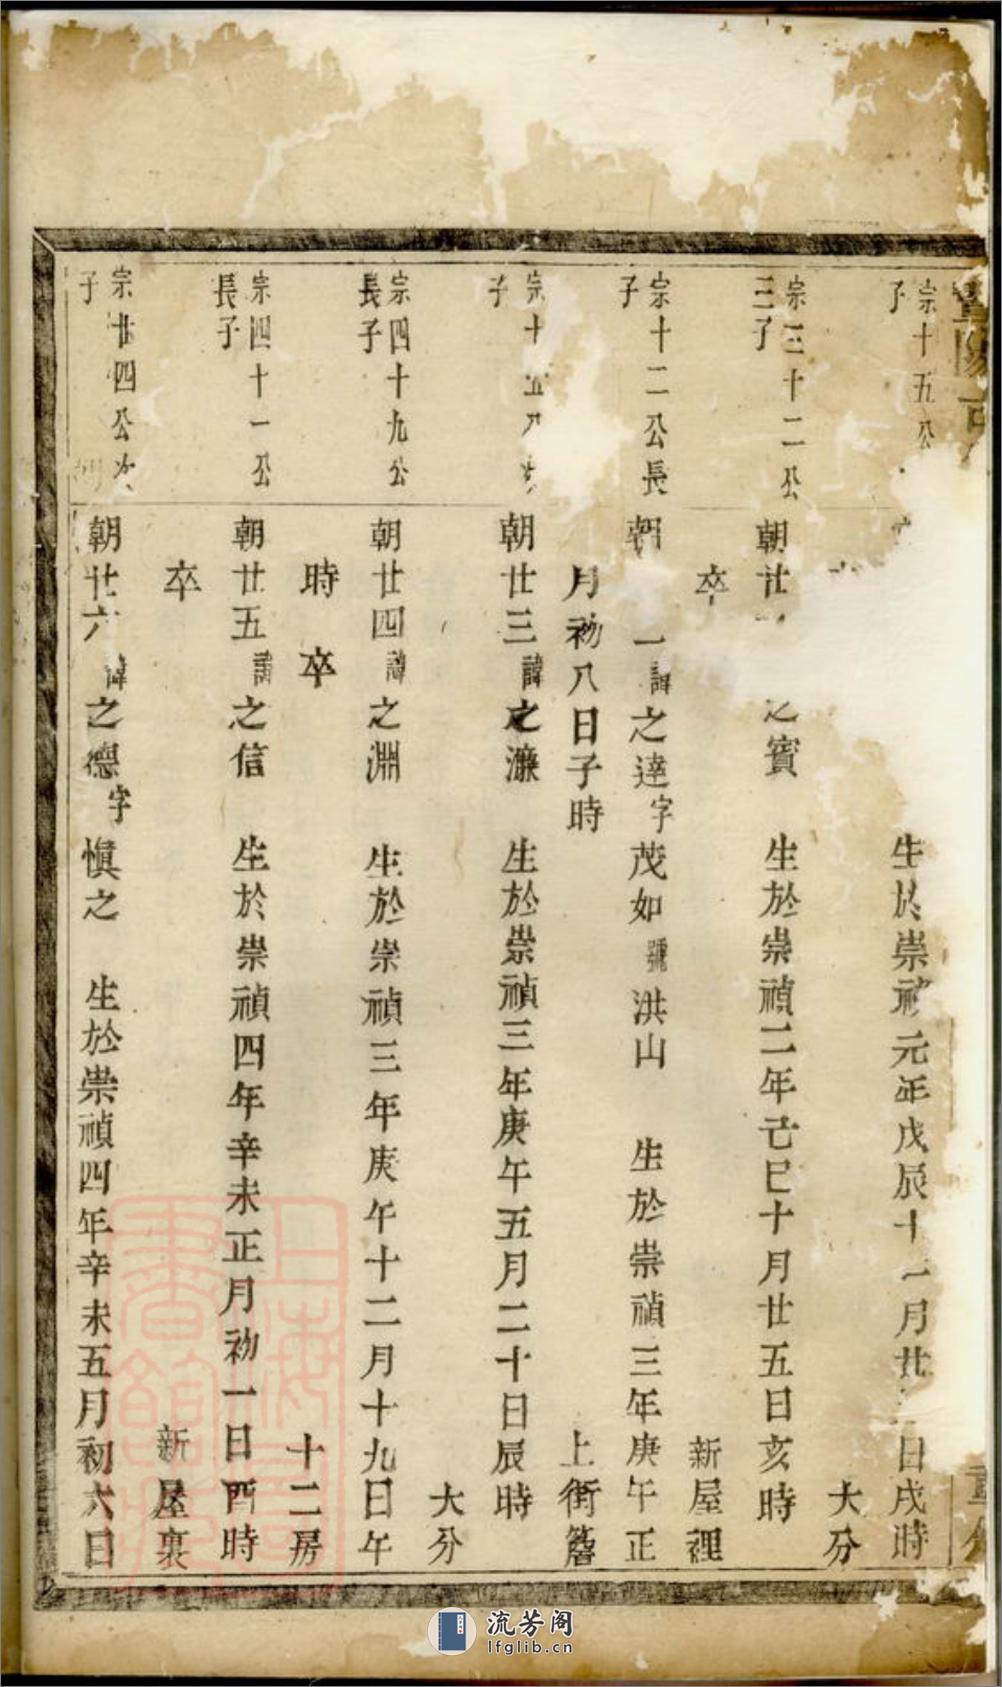 宗十五公
子
生於崇禎元年戊辰十一月廿 日戌時
大分
宗三十二公
三子
朝廿 之賓 生於崇禎二年己巳十月廿五日亥時
卒 新屋裡
宗十二公長
子
朝 一諱之達字茂如號洪山 生於崇禎三年庚午正
月初八日子時 上街簷
宗十五 次
子
朝廿三諱之濂 生於崇禎三年庚午五月二十日辰時
大分
宗四十九公
長子
朝廿四諱之淵 生於崇禎三年庚午十二月十九日午
時 卒 十二房
宗四十一公
長子
朝廿五諱之信 生於崇禎四年辛未正月初一日酉時
卒 新屋裏
宗廿四公次
子
朝廿六諱之德字慎之 生於崇禎四年辛未五月初六日
上海圖書館藏
流芳阁
lfglib.cn